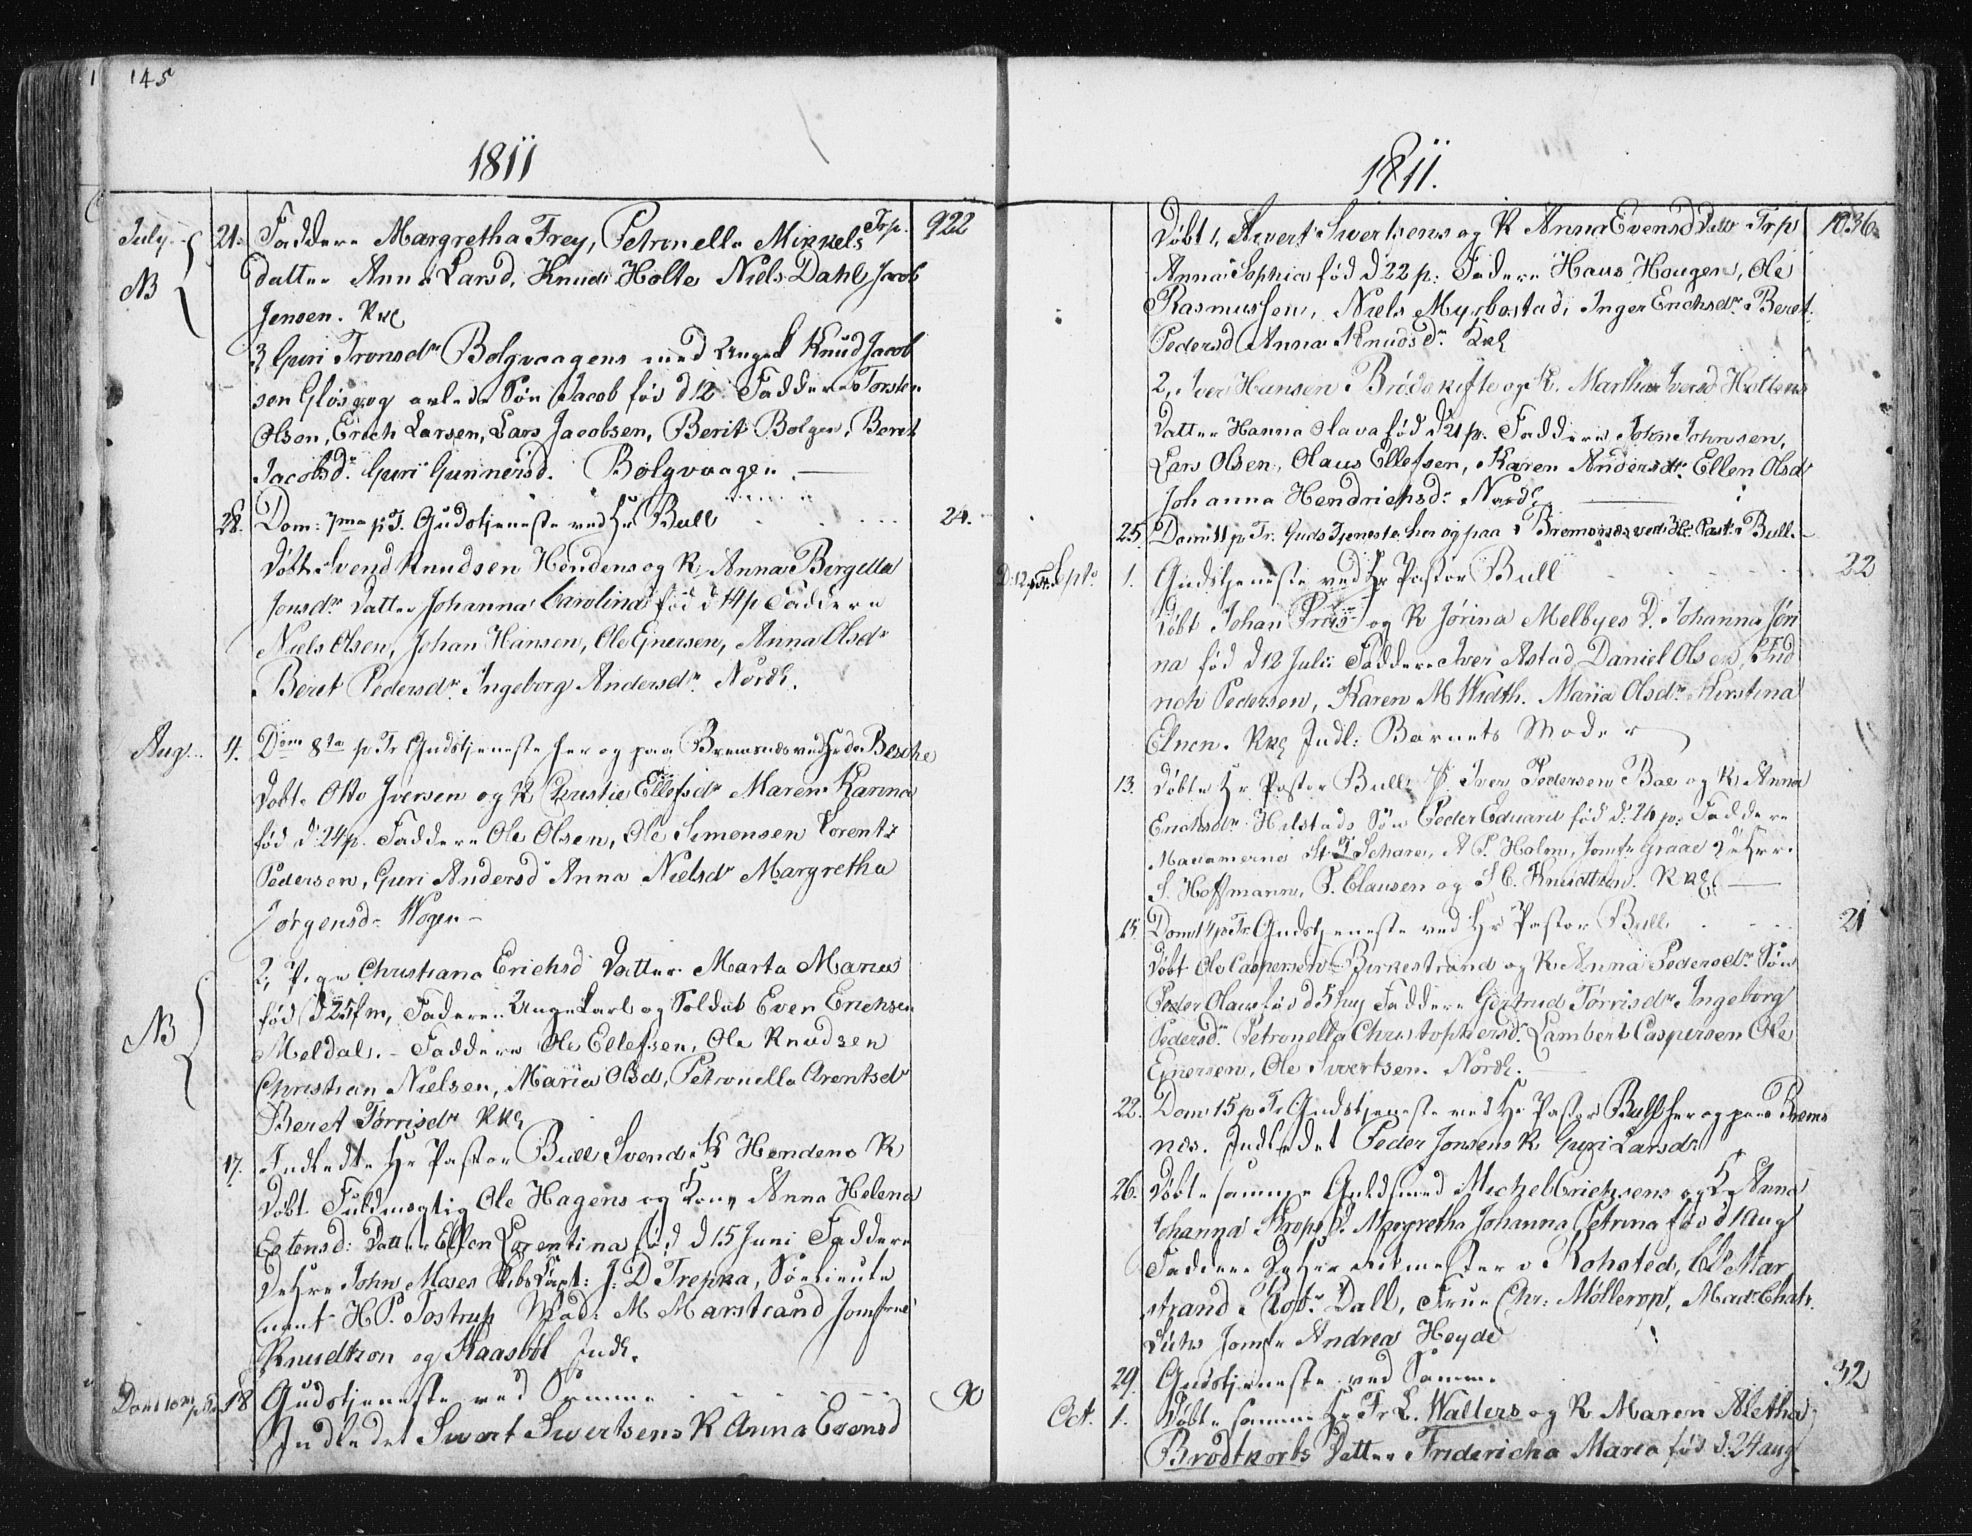 145
1811
July 21. Faddere Margretha Frey, Petronella Mikkels Trp. 922
NB datter Anne Larsd. Knud Holte Niels Dahl Jacob
Jensen. Kkg
3, Guri Tronsdr Bolgvaagens med Ungk Knud Jacob
sen Gløs og avlede Søn Jacob fød d 12 Faddere Torsten
Olsen, Erich Larsen, Lars Jacobsen, Berit Bolgen, Beret
Jacobsdr. Guri Gunnersd. Bolgvaagen.
28. Dom: 7ma p T. Gudstjeneste ved Hr Bull 24.
Døbt Svend Knudsen Hendens og K. Anna Bergella
Jonsdr Datter Johanna Carolina fød d 14 p Faddere
Niels Olsen, Johan Hansen, Ole Ejnersen, Anna Olsdr
Beret Pedersdr. Ingeborg Andersdr. Nordl.
Aug. 4. Dom 8ta p Tr Gudstjeneste her og paa Bremsnes ved Hr Besche
Døbt Otto Iversen og K Christie Ellefsdr Maren Karina
fød d 24 p. Faddere Ole Olsen, Ole Simonsen Lorentz
Pedersen, Guri Andersd Anna Nielsdr Margretha
Jørgensd. Wogen
2, Pige Christiana Erichsd Datter Marta Maria
NB fød d 25 f m, Faderen Ungekarl og Soldat Even Erichsen
Meldal. - Faddere Ole Ellefsen, Ole Knudsen
Christian Nielsen, Maria Olsd, Petronella Arentsdr
Beret Tørrisdr Kkg
17. Indledte Hr Pastor Bull Svend K Hendens K
Døbt Fuldmægtig Ole Hagens og Kone Anna Helena
Estensd: Datter Ellen Lorentina fød d 15 Juni Faddere
DeHrr John Moses Capt: J. D Trepka, Søelieute
nant H P. Tostrup Mad. M Marstrand Jomfrue
Knudtzon og Kaasbøl Indl.
Dom 10 p 18 Gudstjeneste ved Samme 90
Indledet Sivert Sivertsens K Anna Evensd
1811.
Døbt 1, Sivert Sivertsens og K Anna Evensd Datter Trp 1036
Anna Sophia fød d 22 p: Faddere Hans Hougen, Ole
Rasmussen, Niels Myrbostad, Inger Erichsdr. Beret
Pedersd Anna Knudsdr. Kkg
2, Iver Hansen Brødskifte og K. Martha Iversd Holtens
Datter Hanna Olava fød d 21 p. Faddere John Johnsen,
Lars Olsen, Olaus Ellefsen, Karen Andersdr. Ellen Olsdr
Johanna Hendrichsdr. Nordl.
25. Dom: 11 p. Tr. Guds Tjeneste her og paa Bremsnes ved Hr. Past. Bull.
D. 12 Septr. 1. Gudstjeneste ved Hr Pastor Bull 22
Døbt Johan og K Jørina Melbyes D. Johanna Jøri
na fød d 12 Julii Faddere Iver Astad, Daniel Olsen, Frid
rich Pedersen, Karen M Width. Maria Olsdr. Kirstina
Elnen. Kkg Indl: Barnets Moder
13. Døbte Hr Pastor Bull. P. Iver Pedersen Bae og K Anna
Erichsdr. Hilstads Søn Peder Eduard fød d. 26 p: Faddere
Madamerne St. Schare, A P. Holm, Jomfr Graae DeHrr.
S. Hoffmann, P. Clausen og S C. Knudtzon. Kkg
15. Dom 14 p Tr. Gudstjeneste ved Hr Pastor Bull 21
Døbt Ole Caspersen Birkestrand og K Anna Pedersdr. Søn
Peder Olaus fød d 5 huj Faddere Gjertrud Tørrisdr. Ingeborg
Pedersd. Petronella Christophersdr. Lambert Caspersen Ole
Ejnersen, Ole Sivertsen. Nordl.
22. Dom 15 p Tr Gudstjeneste ved Hr Pastor Bull her og paa Brems
nes. Indledet Peder Jonsens K. Guri Larsdr.
26. Døbte samme Guldsmed Michel Erichsens og K Anna
Johanna Skrops D. Margretha Johanna Petrina fød d 1 Aug
Faddere DeHrr Ritmester v Rohsted, C D Mar
strand Dall, Frue Chr: Møllerop, Mad. Chat.
Lùtzs Jomfr Andrea Heyde
29. Gudstjeneste ved Samme 32
Oct. 1. Døbte samme Hr Fr L. Walters og K. Maren Aletha
Brodtkorbs Datter Friderícha Maria fød d. 24 aug